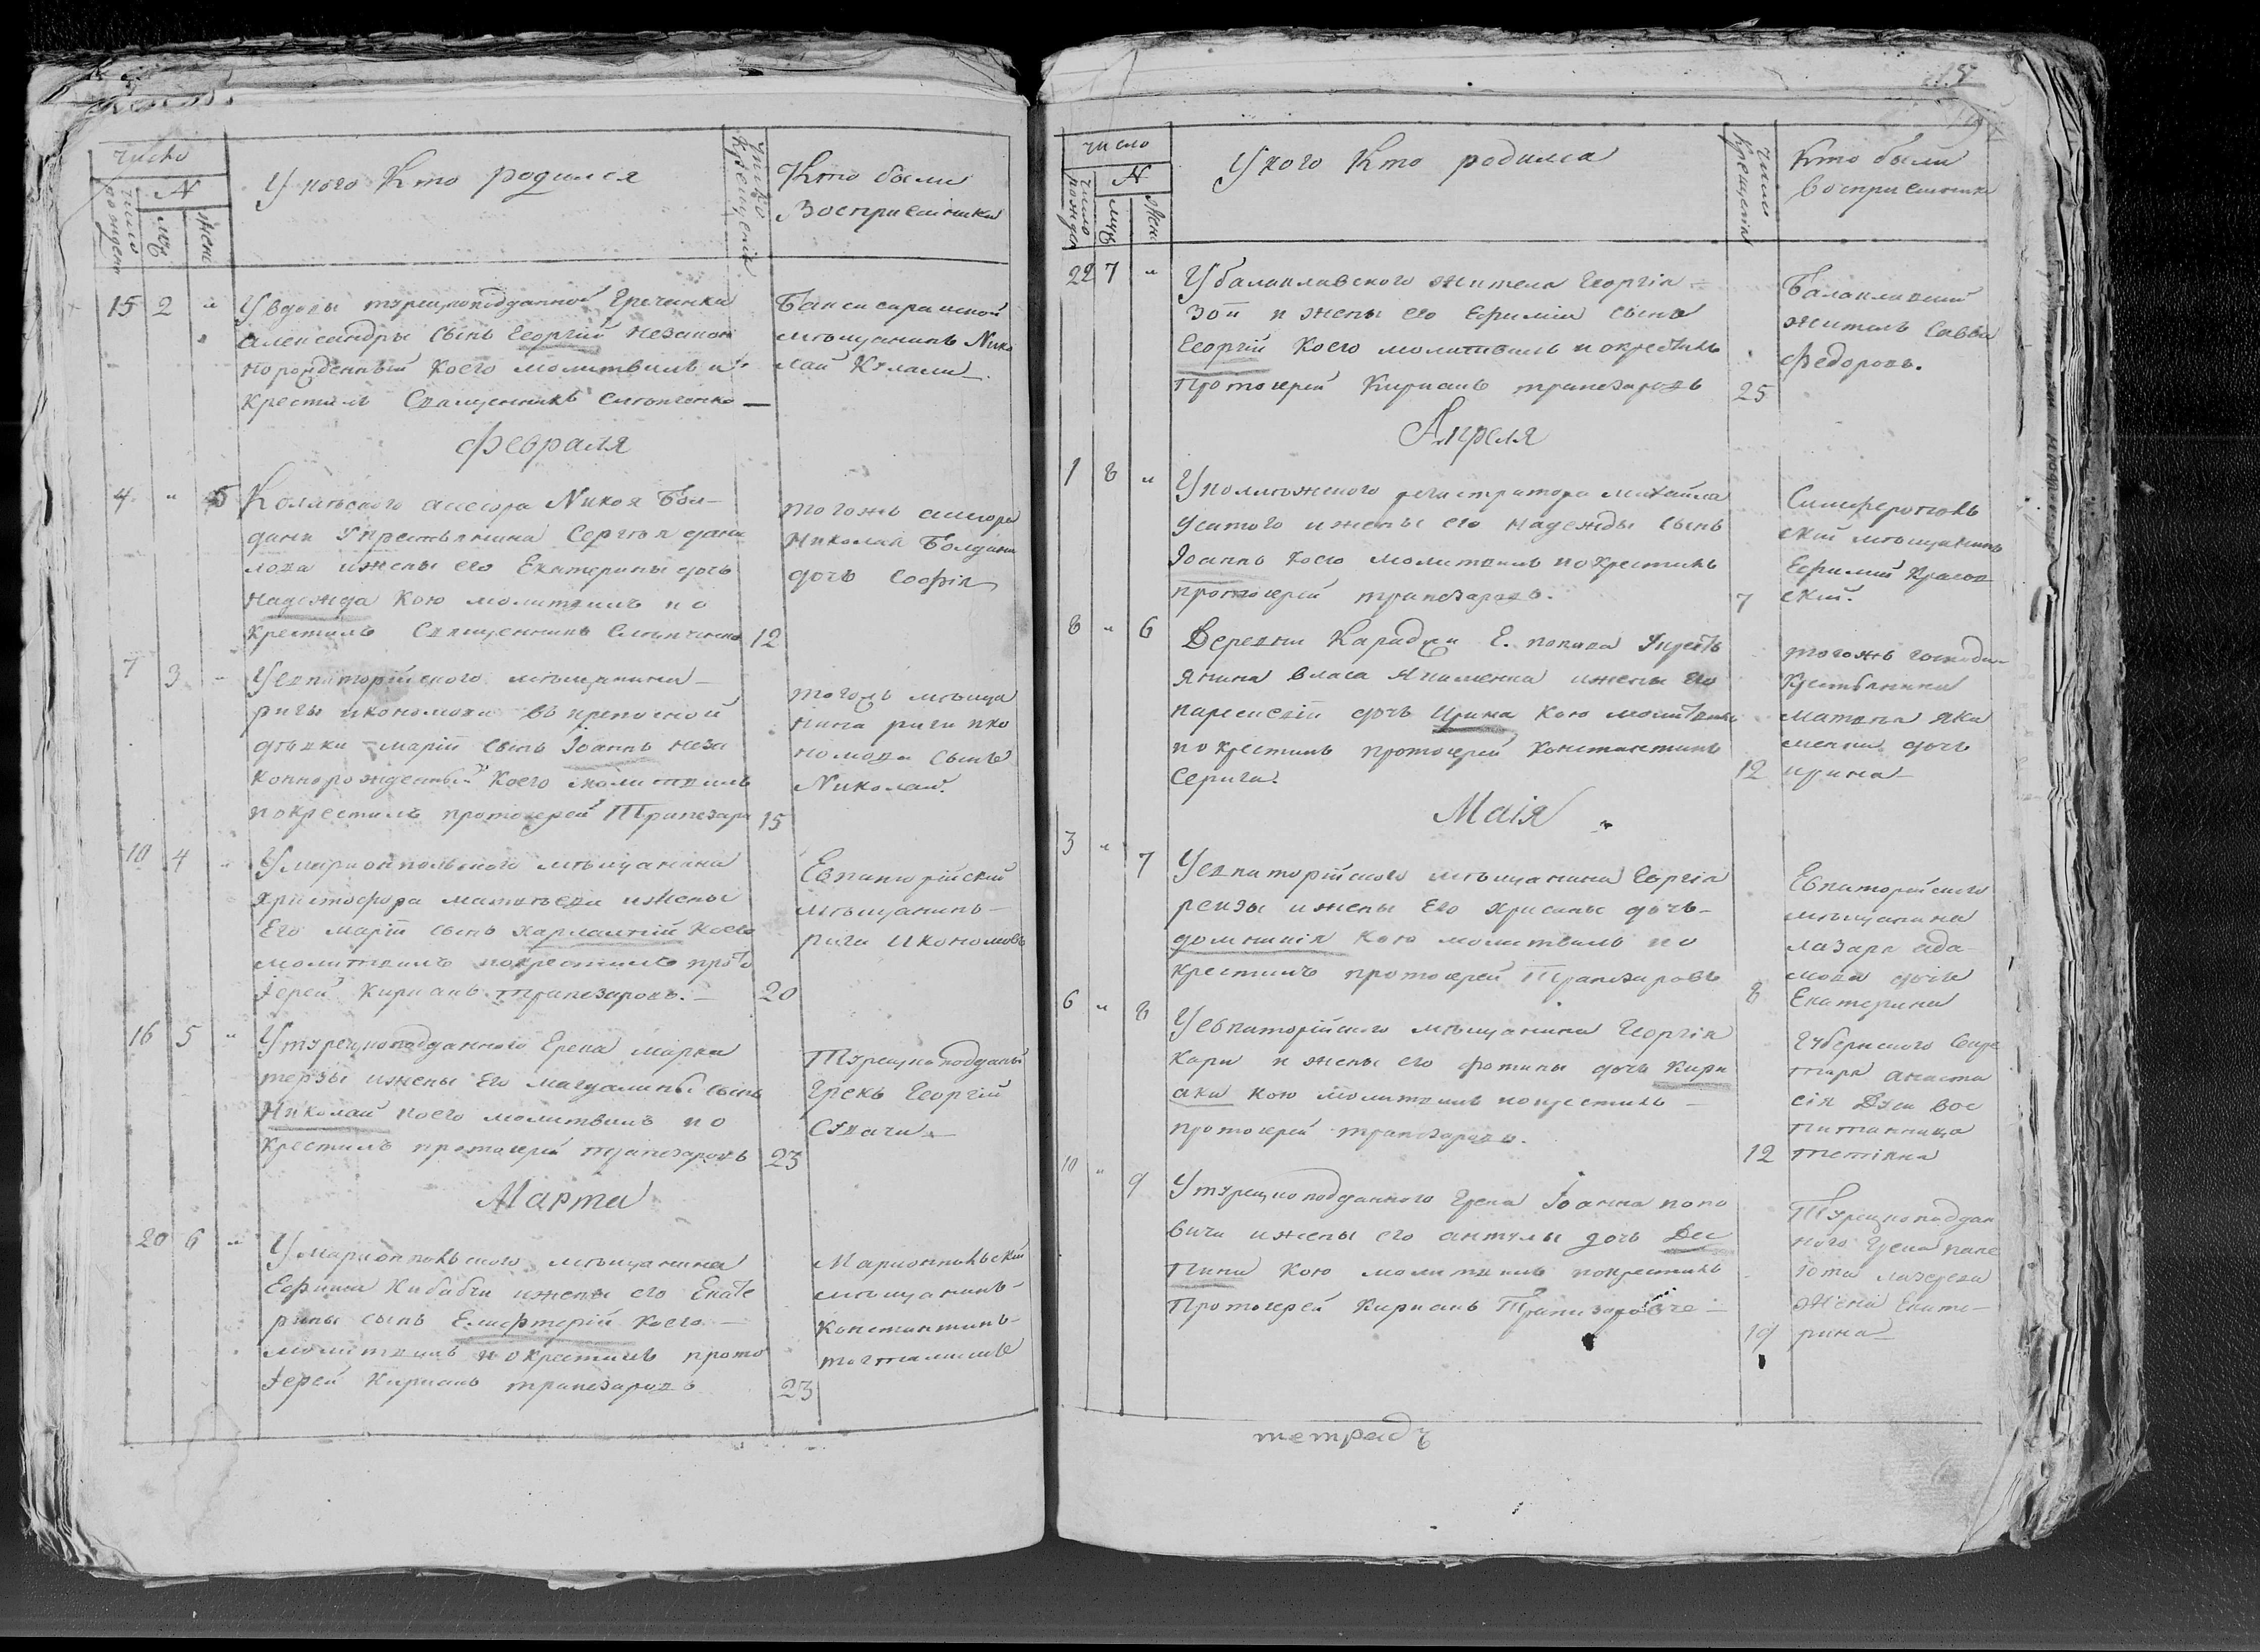 число
N
число рожден
муж
жен
У кого Кто родился
число крещения
Кто были
Восприемники
15 2 "
У вдовы турецкоподданной Гречанки
Александры сынъ Георгий незакон
норожденный коего молитвилъ и
крестилъ Священникъ
Бакчисарайской
мѣщанинъ Нико
лай
Февраля
4 " 5
Коллѣского асесора Николая Бол-
дани У крестьянина Сергѣя дани
лова и жены его Екатерины дочь
Надежда кою молитвилъ и о
крестилъ Священникъ 12
тогожъ асесора
Николая Болдани
дочь Софія
7 3 "
У Евпаторійского мѣщанина
риги икономова въ крепосной
дѣвки марии сынъ Іоаннъ неза
коннорожденный коего молитвилъ
и окрестилъ протоіерей Трапезаро 15
тогожъ мѣща
нина риги ико
номова сынъ
Николай.
10 4 "
У мариопольского мѣщанина
христофора матвѣева и жены
Его маріи сынъ харлампій коего
молитвилъ и окрестилъ прото
іерей Кириакъ Трапезаровъ. 20
Евпаторійский
мѣщанинъ
рига Икономовъ
16 5 "
У турецкоподданного Грека марка
терзы и жены Его магдалины сынъ
Николай коего молитвилъ и о
крестилъ протоіерей трапезаровъ 23
Турецкоподданый
Грекъ Георгій
Марта
20 6 "
У Мариопольского мѣщанина
Ефима Кибабчи и жены его Екате
рины сынъ Елефтерій коего
молитвилъ и окрестилъ прото
іерей Кириакъ трапезаровъ 23
Мариопольский
мѣщанинъ
Константинъ
число
N
число рожде
муж
жен
У кого Кто родился
число крещения
Кто были
восприемники
22 7 "
У балаклавского жителя Георгія
Зои и жены его Ефиміи сынъ
Георгій коего молитвилъ и окрестилъ
Протоіерей Кириакъ трапезаровъ 25
Балаклавский
житель Савва
Федоровъ.
Апреля
1 8 "
У коллѣжского регистратора михайла
Усатого и жены его надежды сынъ
Іоаннъ коего молитвилъ и окрестилъ
протоіерей трапезаровъ. 7
Симферополь
ский мѣщанинъ
Ефимий Красов
ский.
8 " 6
Деревни Караджи Е. попова У крестъ
янина Власа Якименка и жены его
параскевіи дочь Ирина кою молитвилъ
и окрестилъ протоіерей Константинъ
Серига. 12
тогожъ господи
крестьянина
матвѣя Яки
менка дочь
ирина
Маія
3 " 7
У Евпаторійского мѣщанина Георгія
рензы и жены Его хрисаны дочь
домникія кою молитвилъ и о
крестилъ протоіерей Трапезаровъ 8
Евпаторийского
мѣщанина
лазаря ада
мова дочь
Екатерина
6 " 8
У евпаторійского мѣщанина Георгія
Кари и жены его фотины дочь Кири
аки кою молитвилъ и окрестилъ
протоіерей трапезаровъ. 12
Губернского Секре
таря анаста
сія Дуси вос
питанница
10 " 9
У турецкоподданного Грека Іоанна попо
вича и жены его антулы дочь Дес
пина кою молитвилъ и окрестилъ
Протоіерей Кириакъ Трапезаровъ 19
Турецкоподдан
ного Грека пана
іота
жена Екате
рина
тетрадь